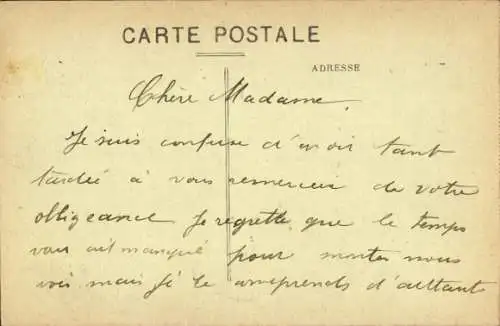 CARTE POSTALE
ADRESSE
Chère Madame
Je suis confuse d'avoir tant
tardé à vous remercier de votre
obligeance Je regrette que le temps
vous ait manqué pour monter nous
voir mais je le comprends d'autant